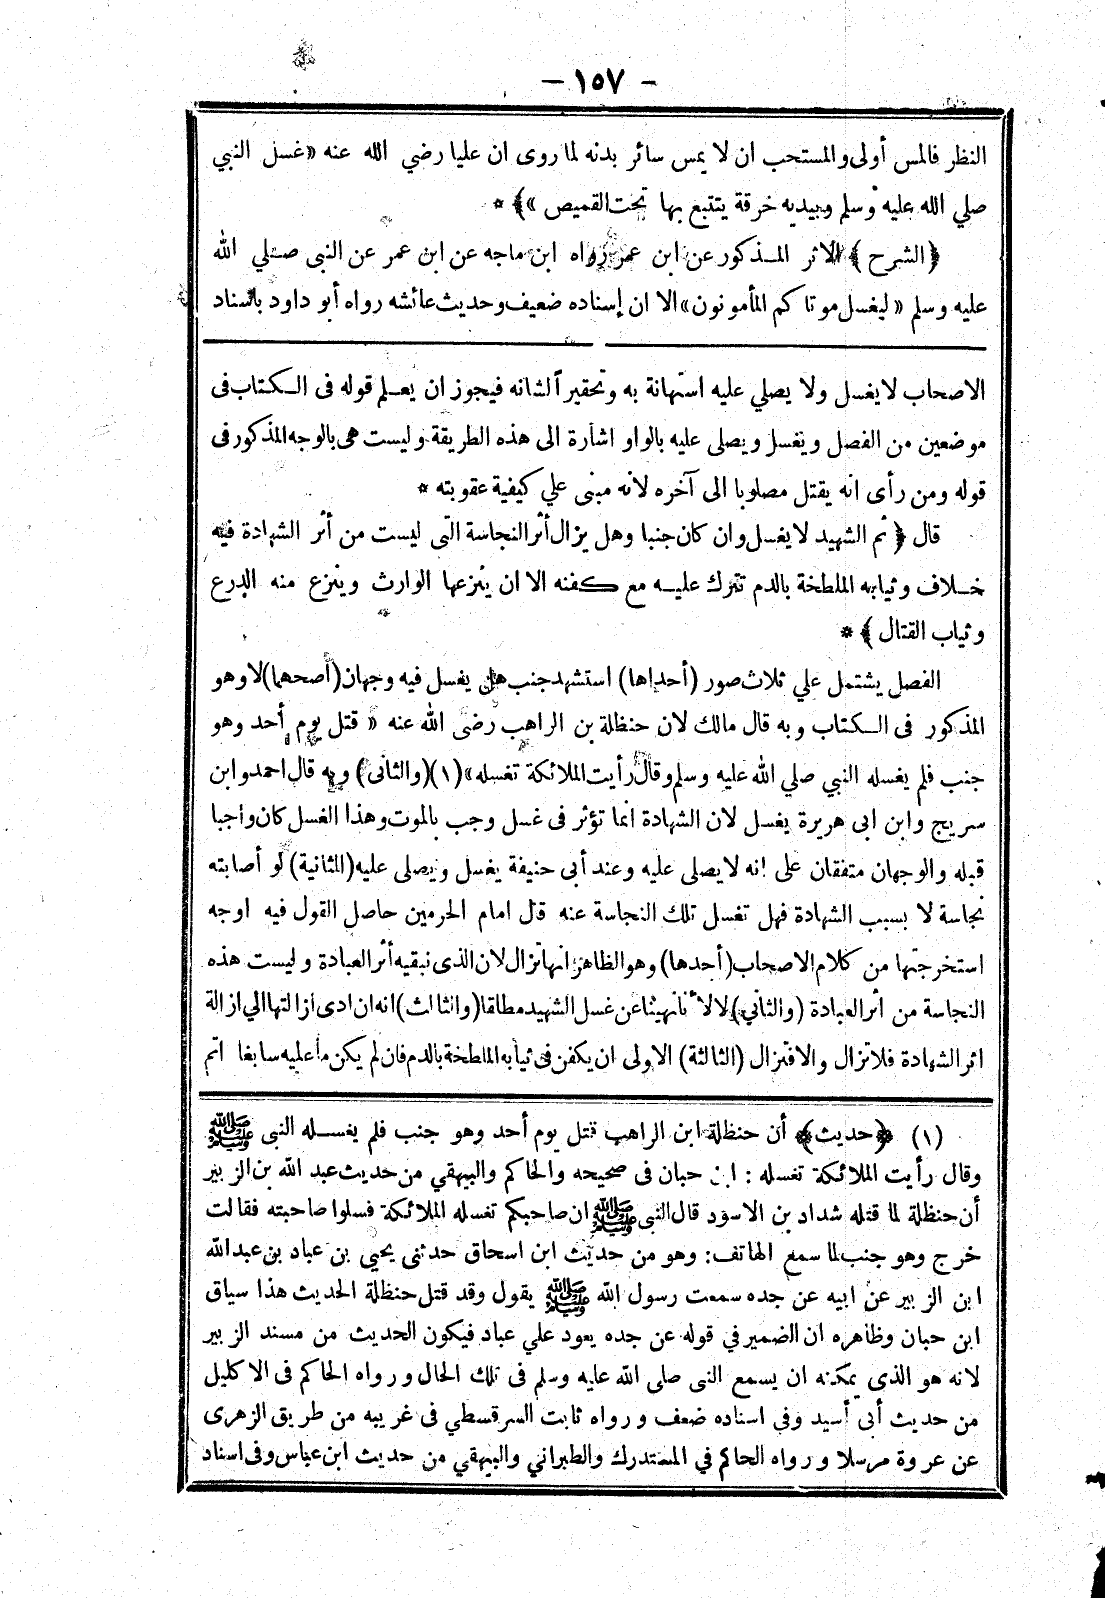 — ١٥٧ —
النظر فالمس أولى والمستحب ان لا يمس سائر بدنه لما روى ان عليا رضي الله عنه «غسل النبي
صلي الله عليه وسلم وبيديه خرقة يتتبع بها تحت القميص»﴾ *
﴿الشرح﴾ الاثر المـذكور عن ابن عمر رواه ابن ماجه عن ابن عمر عن النبى صـلي الله
عليه وسلم «ليغسل موتاكم المأمونون» الا ان إسناده ضعيف وحديث عائشه رواه أبو داود باسناد
الاصحاب لا يغسل ولا يصلي عليه استهانة به وتحقيرا لشانه فيجوز ان يعـلم قوله فى الـكتاب فى
موضعين من الفصل ويغسل ويصلى عليه بالواو اشارة الى هذه الطريقة وليست هى بالوجه المذكور فى
قوله ومن رأى انه يقتل مصلوبا الى آخره لانه مبنى علي كيفية عقوبته *
قال ﴿ثم الشهيد لا يغسل وان كان جنبا وهل يزال أثر النجاسة التى ليست من أثر الشهادة فيه
خـلاف وثيابه الملطخة بالدم تترك عليـه مع كـفنه الا ان ينزعها الوارث وينزع منه الدرع
وثياب القتال﴾ *
الفصل يشتمل علي ثلاث صور (أحداها) استشهد جنب هل يغسل فيه وجهان (أصحهما) لا وهو
المذكور فى الـكتاب وبه قال مالك لان حنظلة بن الراهب رضى الله عنه «قتل يوم أحد وهو
جنب فلم يغسله النبي صلي الله عليه وسلم وقال رأيت الملائكة تغسله» (١) (والثانى) وبه قال احمد وابن
سريج وابن ابى هريرة يغسل لان الشهادة انما تؤثر فى غسل وجب بالموت وهذا الغسل كان واجبا
قبله والوجهان متفقان على انه لا يصلى عليه وعند أبى حنيفة يغسل ويصلى عليه (الثانية) لو أصابته
نجاسة لا بسبب الشهادة فهل تغسل تلك النجاسة عنه قال امام الحرمين حاصل القول فيه اوجه
استخرجتها من كلام الاصحاب (أحدها) وهو الظاهر انها تزال لان الذى نبقيه أثر العبادة وليست هذه
النجاسة من أثر العبادة (والثاني) لا لأنا نهينا عن غسل الشهيد مطلقا (والثالث) انه ان ادى ازالتها الي ازالة
اثر الشهادة فلا تزال والا فتزال (الثالثة) الاولى ان يكفن فى ثيابه الملطخة بالدم فان لم يكن ما عليه سابغا اتم
(١) ﴿حديث﴾ أن حنظلة ابن الراهب قتل يوم أحد وهو جنب فلم يغسـله النبى ﷺ
وقال رأيت الملائكة تغسله : ابن حبان فى صحيحه والحاكم والبيهقي من حديث عبد الله بن الزبير
أن حنظلة لما قتله شداد بن الاسود قال النبى ﷺ ان صاحبكم تغسله الملائكة فسلوا صاحبته فقالت
خرج وهو جنب لما سمع الهاتف: وهو من حديث ابن اسحاق حدثنى يحيى بن عباد بن عبد الله
ابن الزبير عن ابيه عن جده سمعت رسول الله ﷺ يقول وقد قتل حنظلة الحديث هذا سياق
ابن حبان وظاهره ان الضمير في قوله عن جده يعود علي عباد فيكون الحديث من مسند الزبير
لانه هو الذى يمكنه ان يسمع النبى صلى الله عليه وسلم فى تلك الحال ورواه الحاكم فى الاكليل
من حديث أبى أسيد وفى اسناده ضعف ورواه ثابت السرقسطي فى غريبه من طريق الزهرى
عن عروة مرسلا ورواه الحاكم في المستدرك والطبراني والبيهقي من حديث ابن عباس وفى اسناد